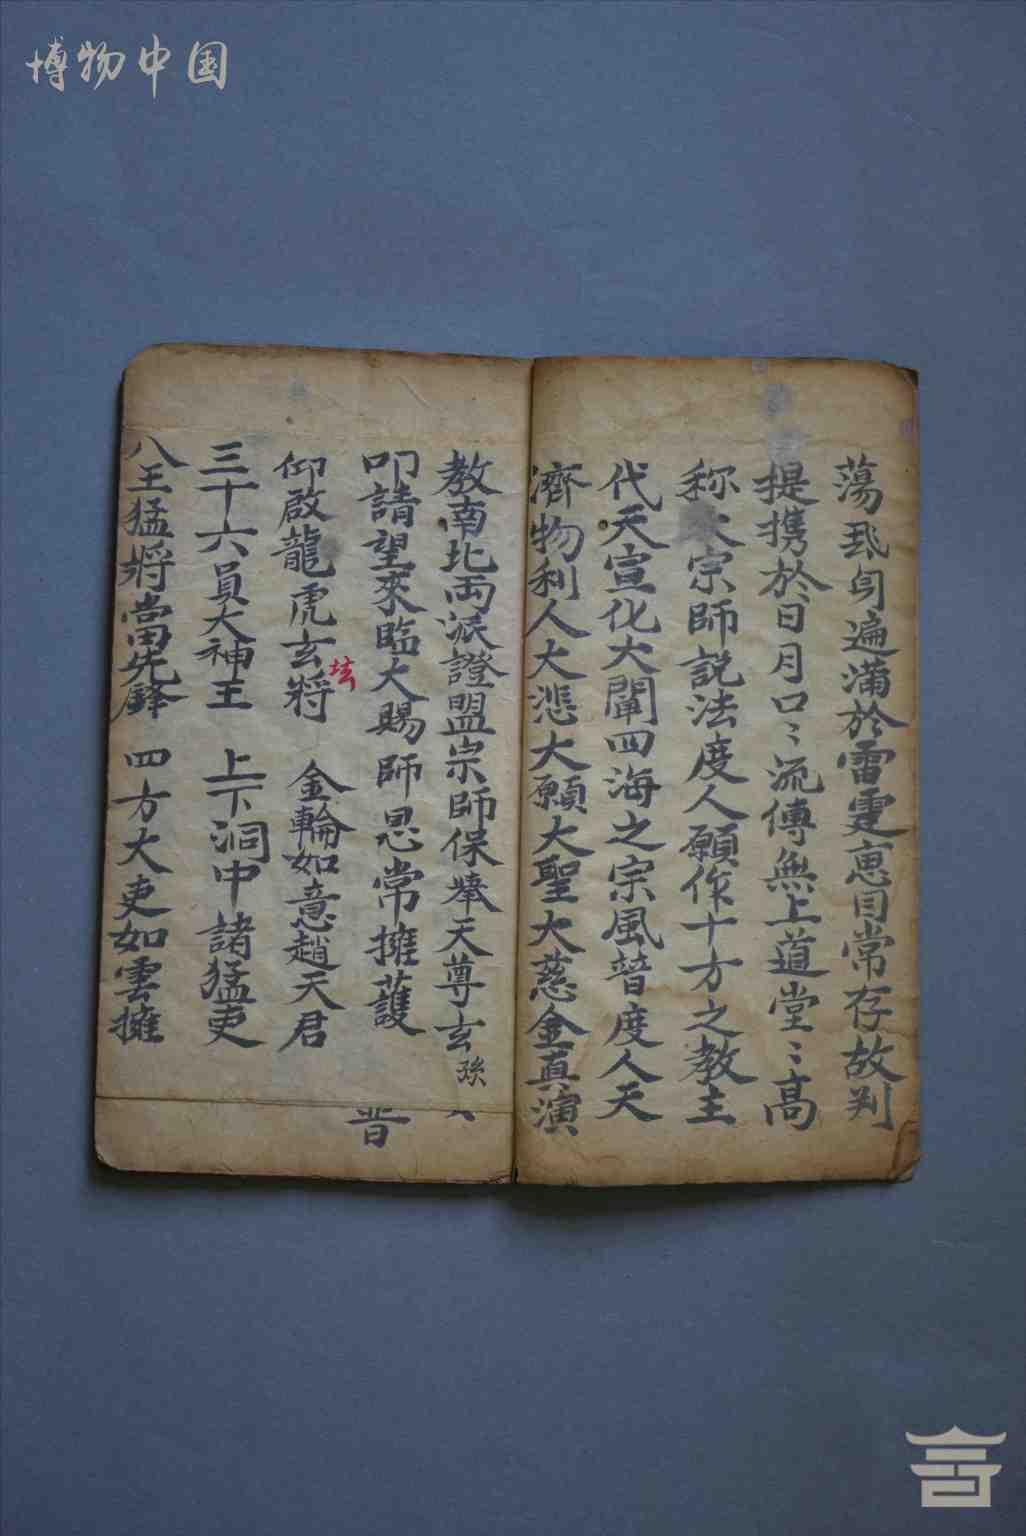 博物中国
蕩琨匀遍滿於雷霆恵目常存故判
提携於日月口〻流傳無上道堂〻高
称大宗師説法度人願作十方之教主
代天宣化大闡四海之宗風普度人天
濟物利人大悲大願大聖大慈金真演
教南北両派證盟宗師保奉天尊玄
叩請望來臨大賜師恩常擁護
仰啟龍虎玄将 金輪如意趙天君
壇
三十六員大神王 上下洞中諸猛吏
八王猛將當先鋒 四方大吏如雲擁
普